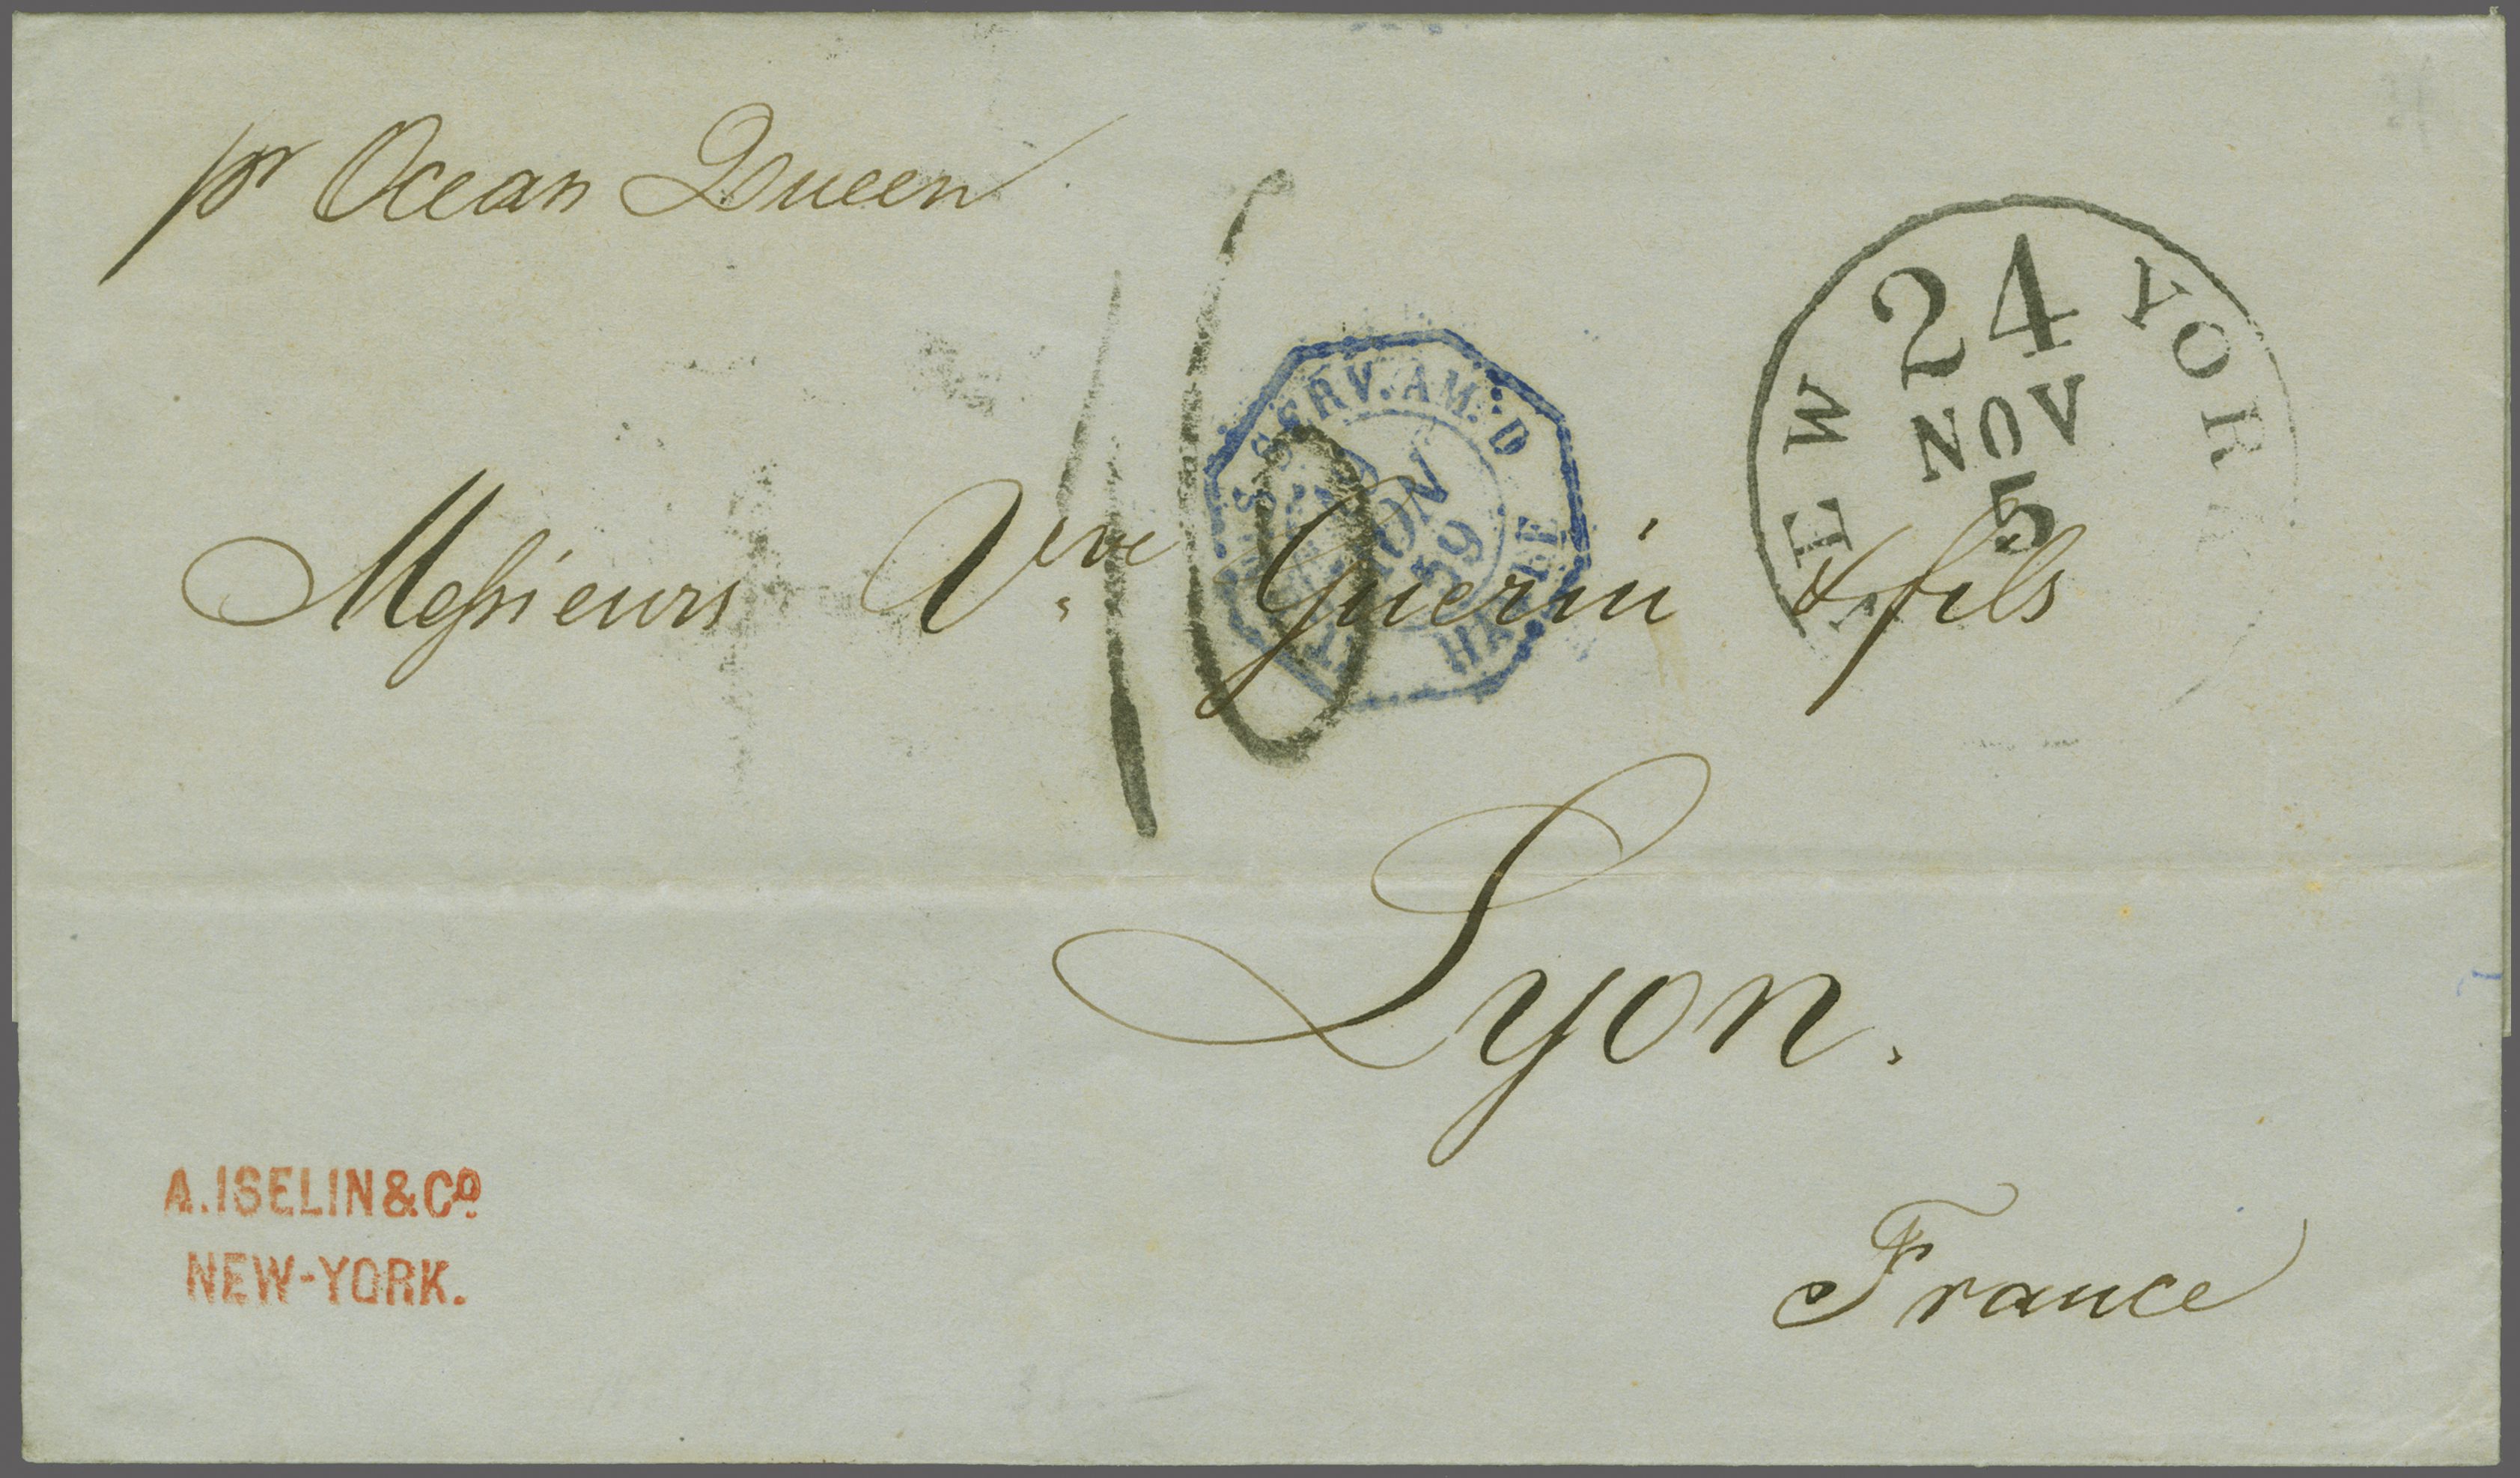 pr Ocean Queen
24
NOV
5
NEW YORK
16
SERV. AM. D
NOV
59
HAVRE
Messieurs Vve Guerin & fils
Lyon.
France
A. ISELIN & Co.
NEW-YORK.